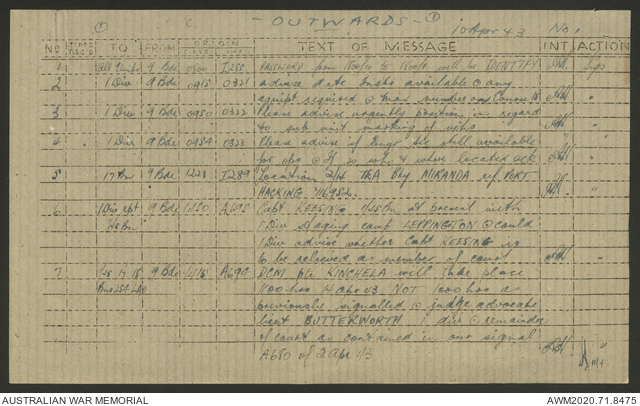 - OUTWARDS - ①
10 Apr 43 No. 1
ORIGIN
NO TIME REC'D TO FROM TEXT OF MESSAGE INT. ACTION
1 All Units 9 Bde 0800 I288 PASSWORD from 1800/10 to 1800/11 will be IDENTIFY Sigs
2 1 Div 9 Bde 0915 0321 advise date available @ any
eqipt required @
3 1 Div 9 Bde 0950 0322 Please advise urgently position in regard
to sub unit marking of vehs
4 1 Div 9 Bde 0954 0323 Please advise if still available
for @ if so who & where located ack
5 17 Bn 9 Bde 1228 I289 Location 2/4 Bty MIRANDA ref PORT
HACKING 116952
6 1 Div rpt 9 Bde 1350 A695 Capt KEESING at present with
1 Div staging camp LEPPINGTON @ could
1 Div advise whether Capt KEESING is
to be relieved as member of court
7 9 Bde 1415 A699 DCM pte KINCHELA will take place
1100 hrs 14 Apr 43 NOT 1000 hrs as
previously signalled @ judge advocate
Lieut BUTTERWORTH 1 div @ remainder
of court as contained in our signal
A680 of 2 Apr 43
AUSTRALIAN WAR MEMORIAL AWM2020.71.8475